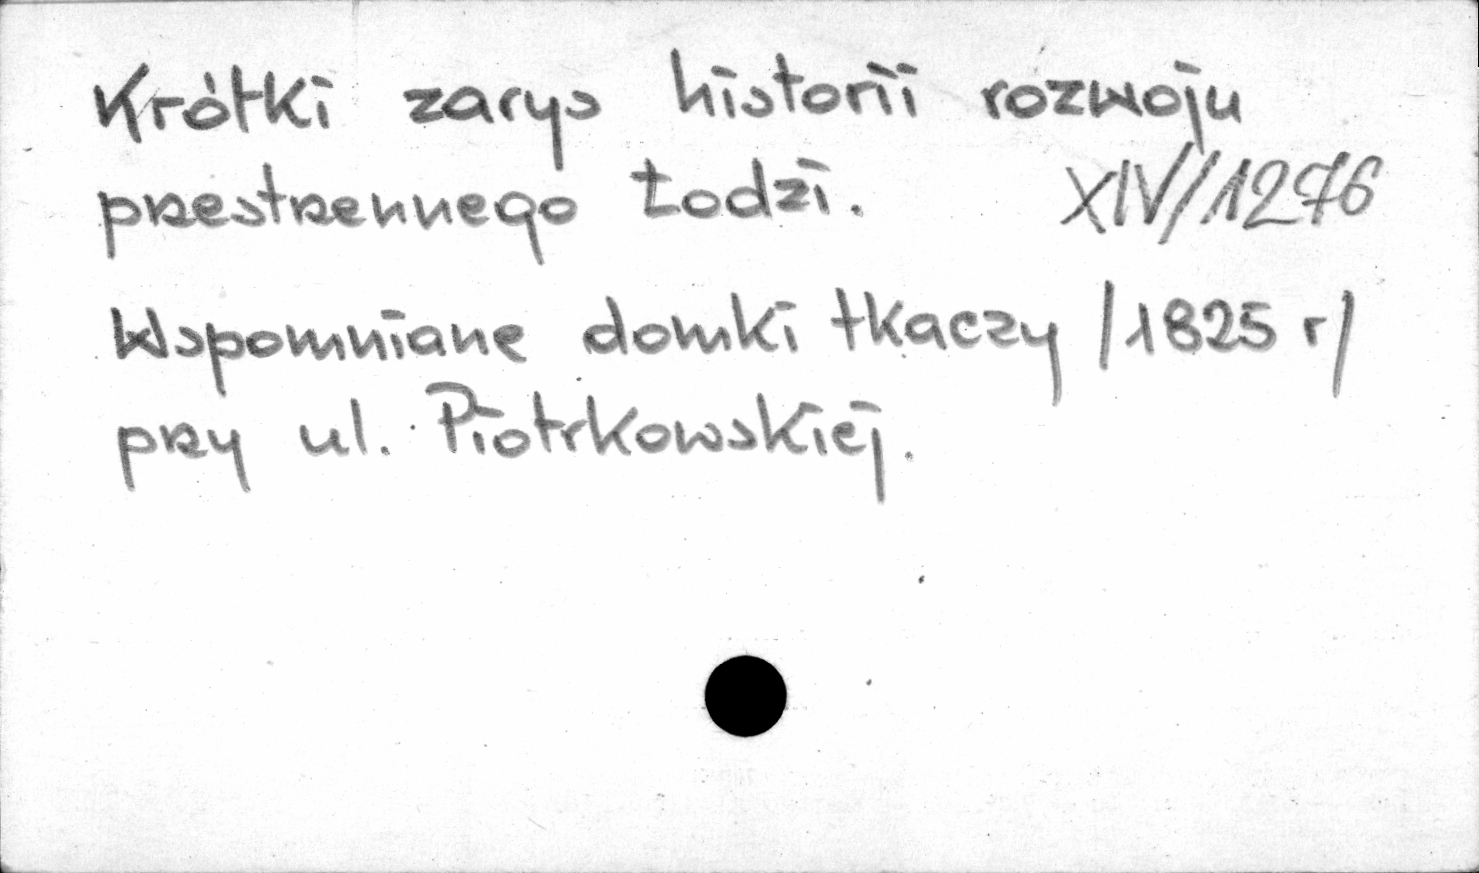 Krótki zarys historii rozwoju
przestrzennego Łodzi. XIV/1276
Wspomniane domki tkaczy /1825 r/
przy ul. Piotrkowskiej.